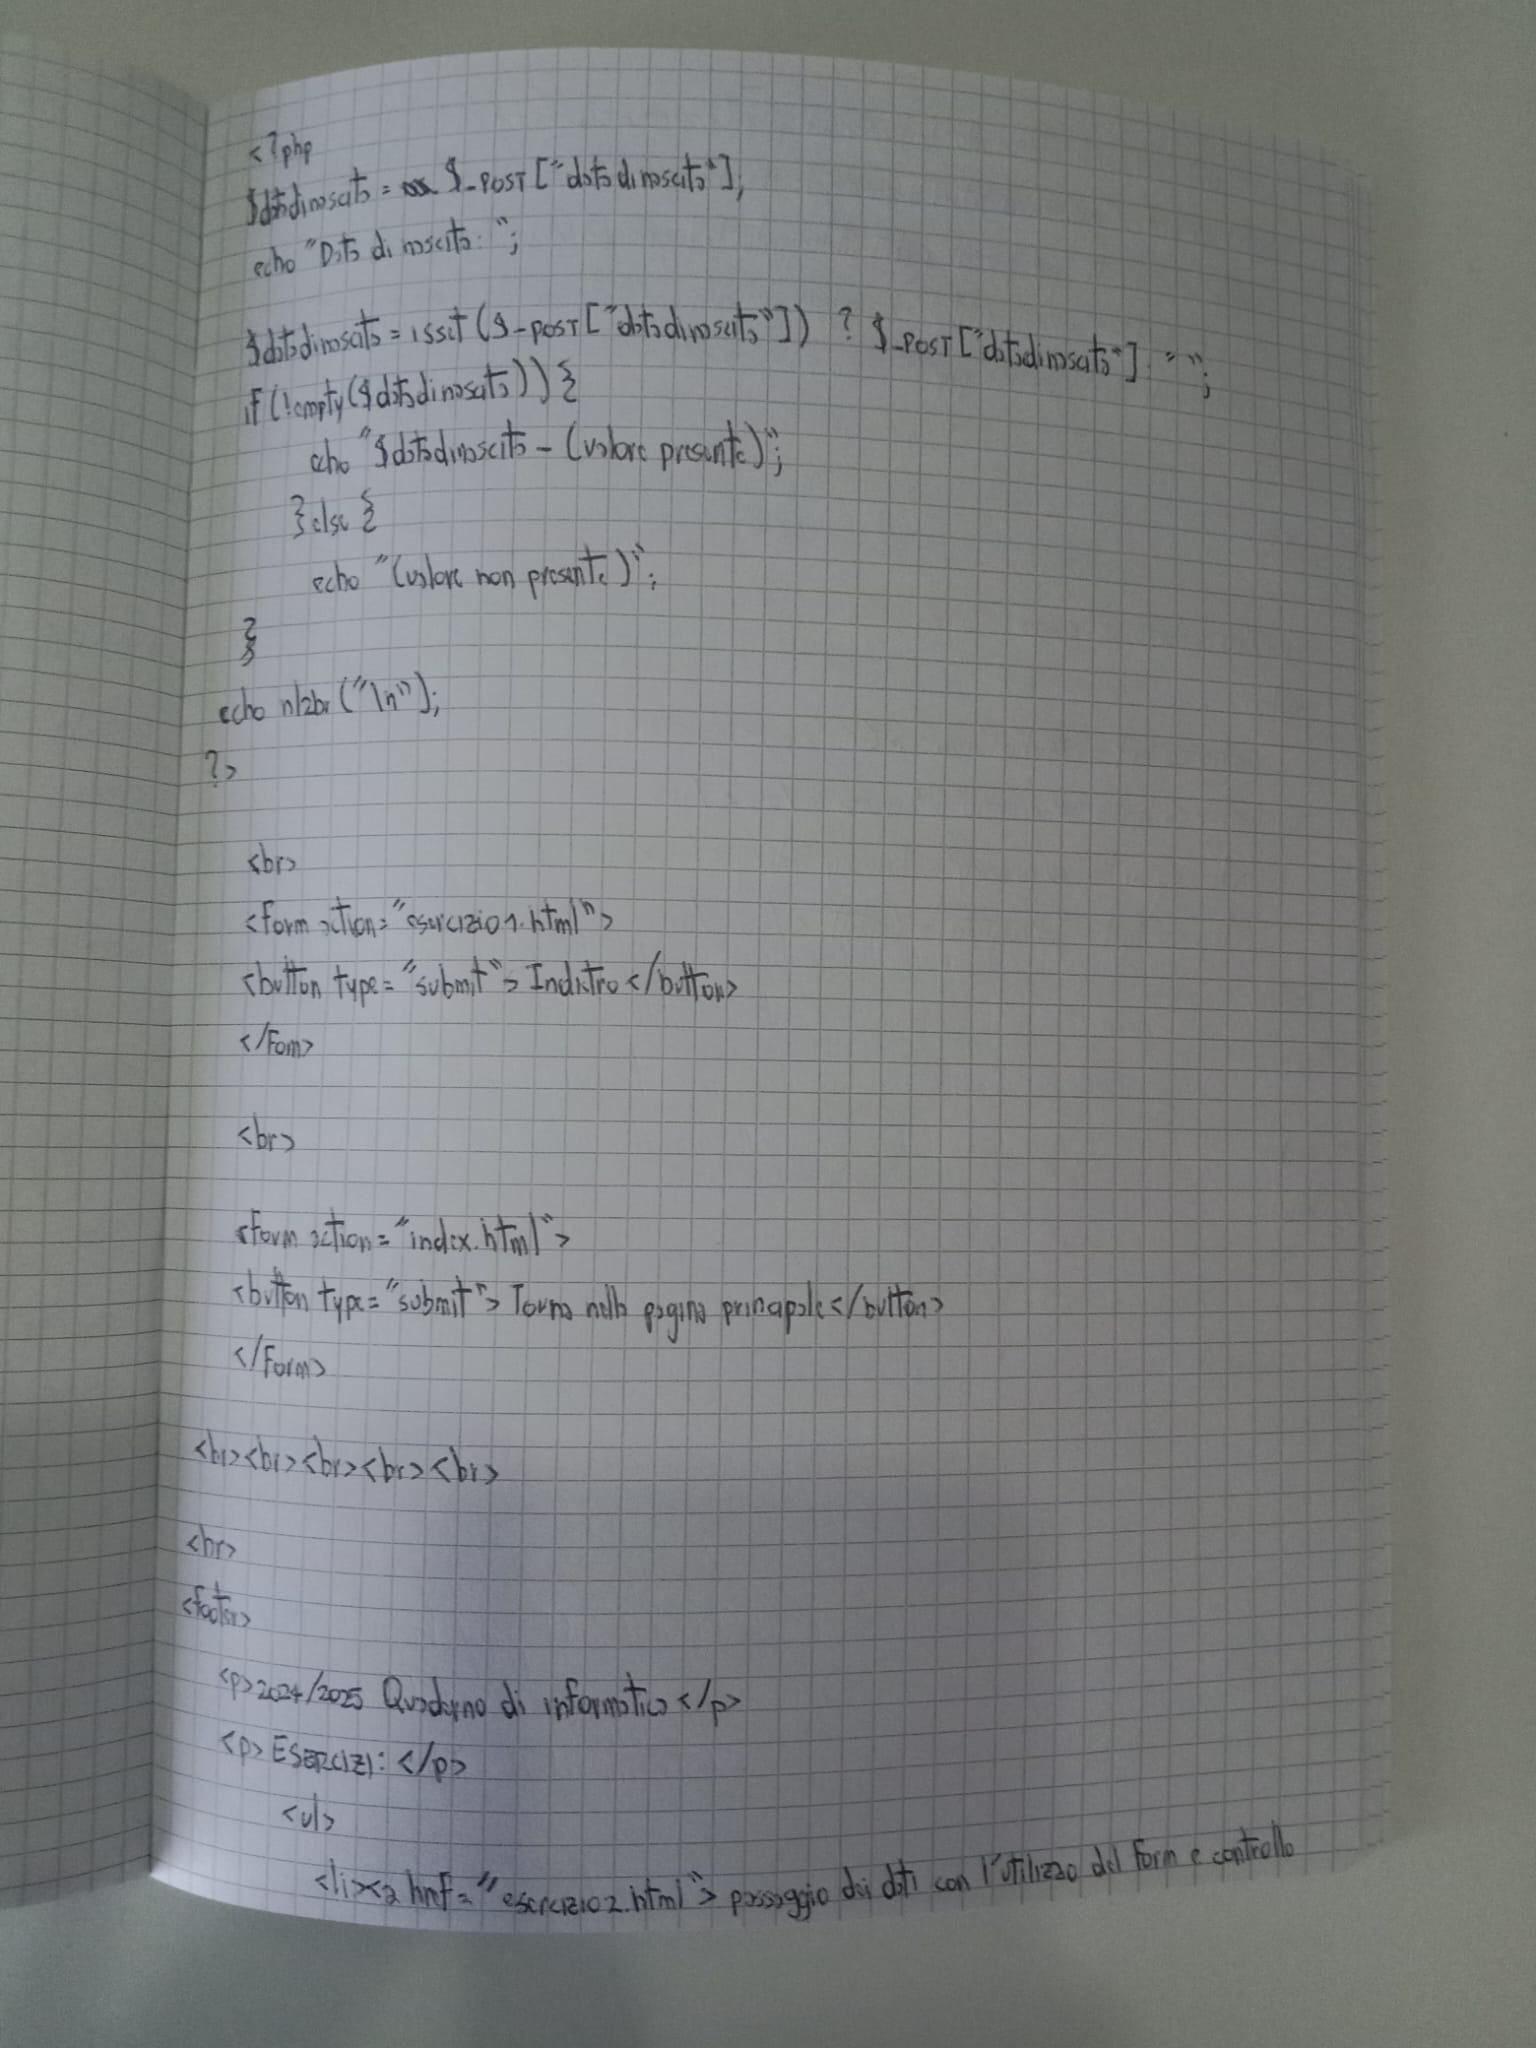 <?php
$datadinascita = $_POST["datadinascita"];
echo "Data di nascita: ";
$datadinascita = isset($_POST["datadinascita"]) ? $_POST["datadinascita"] : "";
if(!empty($datadinascita)){
echo "$datadinascita - (valore presente)";
}else{
echo "(valore non presente)";
}
echo nl2br("\n");
?>
<br>
<form action="esercizio1.html">
<button type="submit"> Indietro </button>
</Fom>
<br>
<form action="index.html">
<button type="submit"> Torna nella pagina principale </button>
</Form>
<br><br><br><br><br>
<hr>
<footer>
<p>2024/2025 Quaderno di informatica </p>
<p> ESERCIZI: </p>
<ul>
<li><a href="esercizio2.html"> passaggio dei dati con l'utilizzo del form e controllo